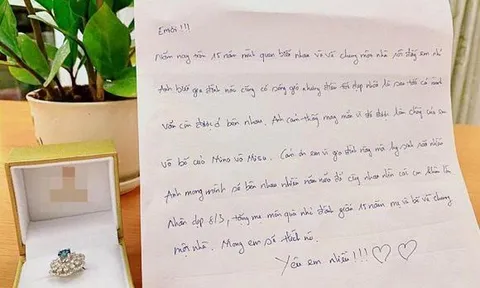 Em ơi !!!
Năm nay tròn 15 năm mình quen biết nhau và về chung một nhà rồi đấy em nhỉ
Anh biết gia đình nào cũng có sóng gió nhưng điều tốt đẹp nhất là sau tất cả mình
vẫn còn được ở bên nhau. Anh cảm thấy may mắn vì đã được làm chồng của em
và bố của Mino và Miso. Cảm ơn em vì gia đình này mà hy sinh rất nhiều
Anh mong mình sẽ bên nhau nhiều năm nữa để cùng nhau nhìn các con khôn lớn
Nhân dịp 8/3, tặng mẹ món quà nhỏ đánh dấu 15 năm mẹ và bố về chung
một nhà. Mong em sẽ thích nó.
Yêu em nhiều !!!